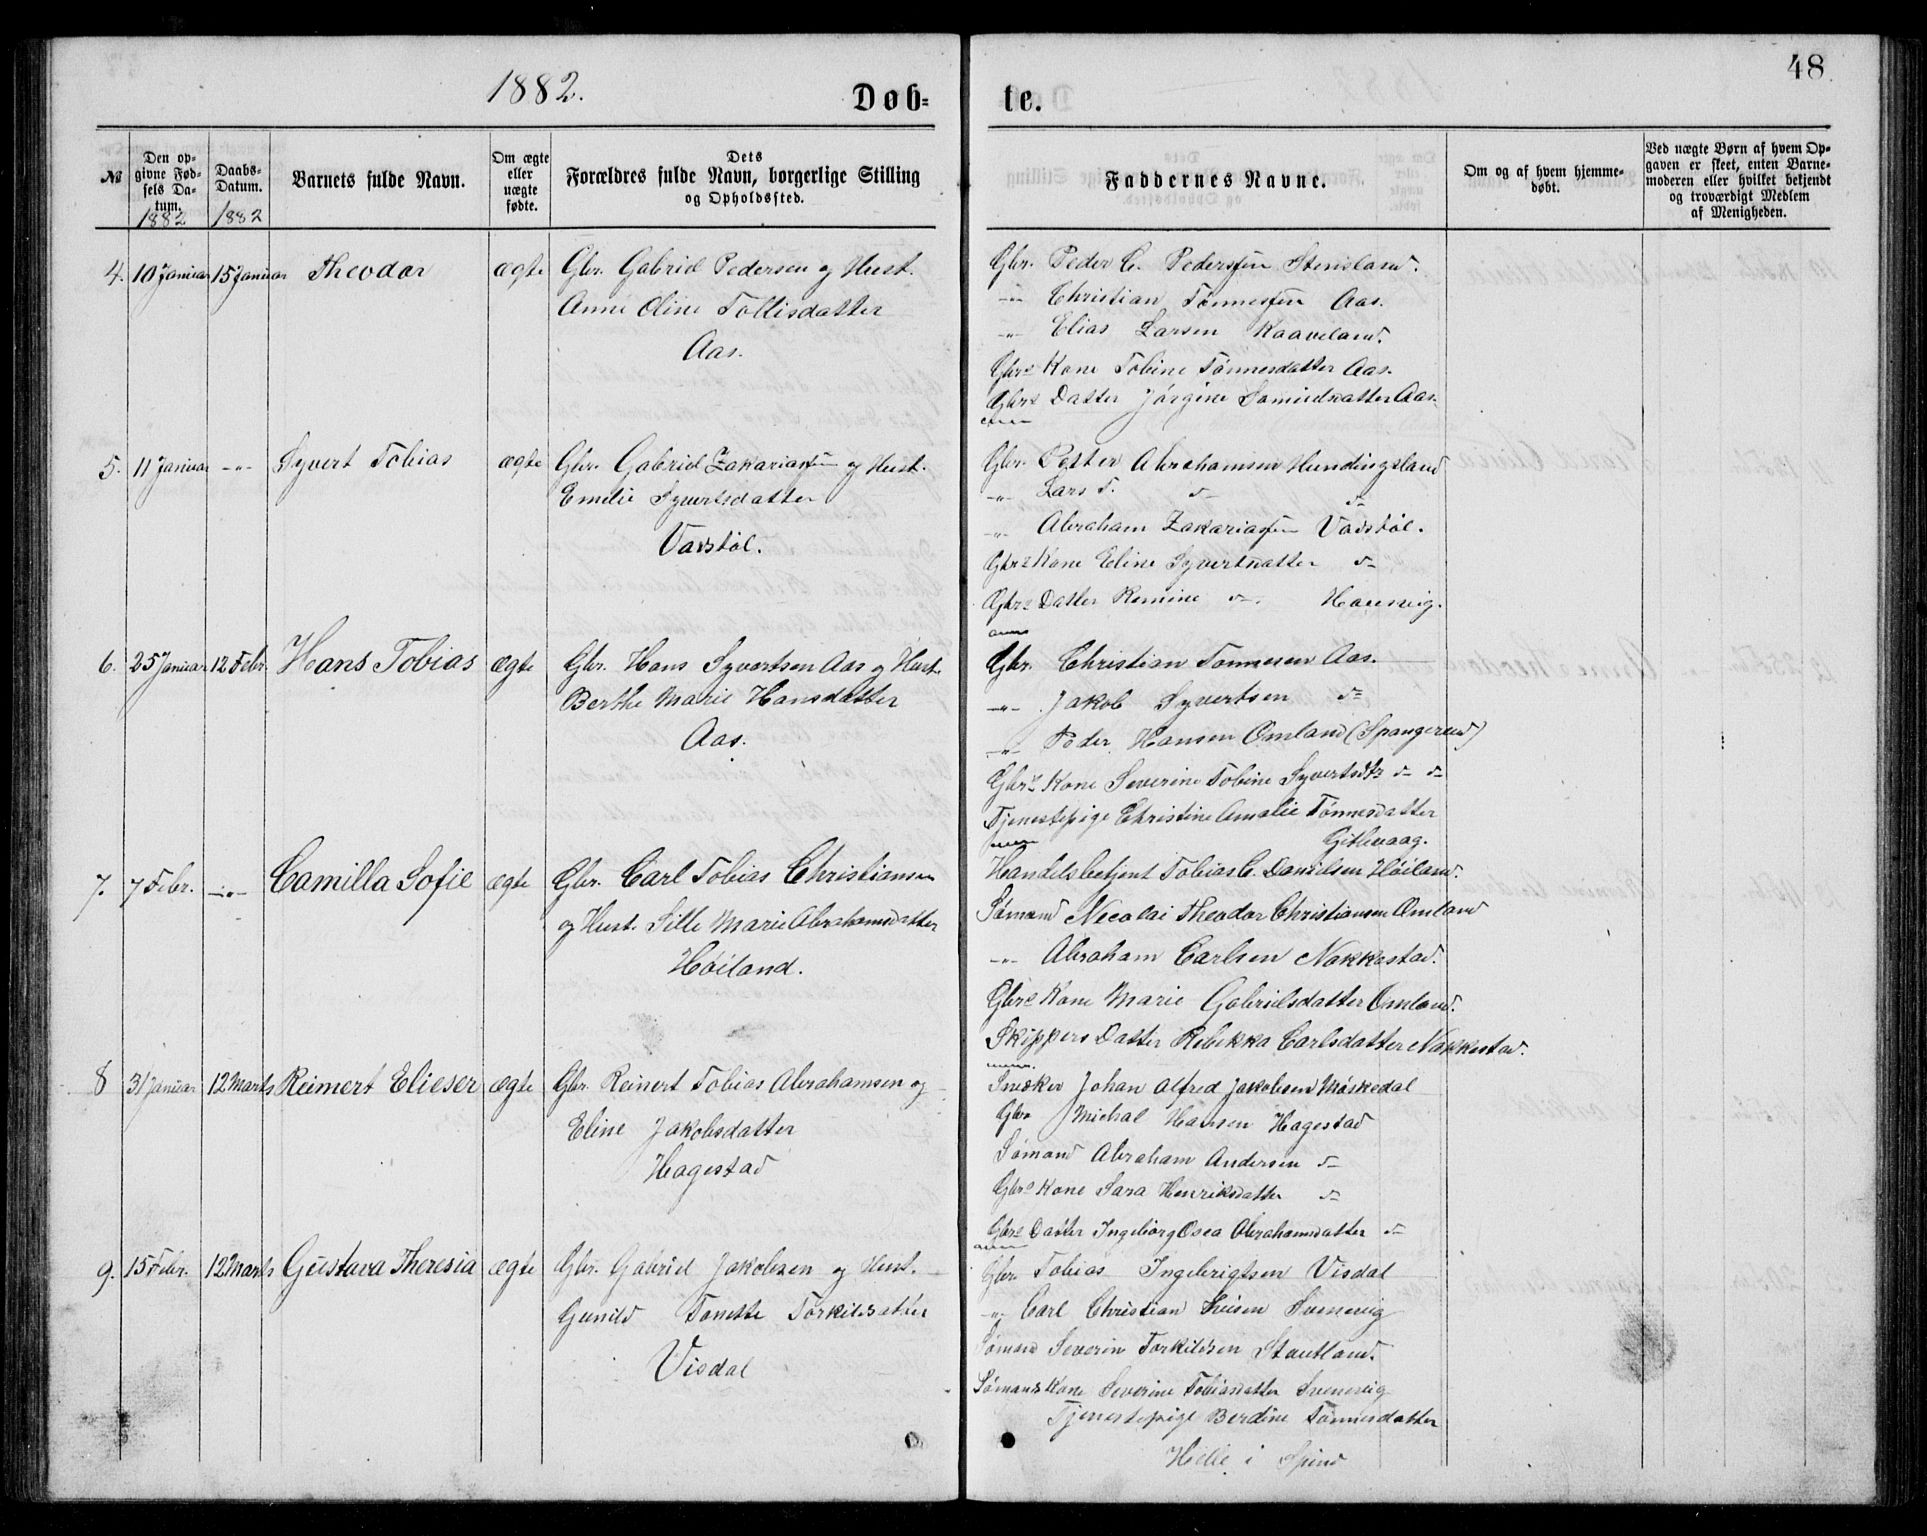 1882.
Døb=
№
Den op=
givne Fød=
sels Da=
tum.
1882
Daabs=
Datum.
1882
Barnets fulde Navn.
Om ægte
eller
uægte
fødte.
Dets
Forældres fulde Navn, borgerlige Stilling
og Opholdssted.
4. 10 Januar 15 Januar Theodor ægte Gbr. Gabriel Pedersen og Hust.
Anne Oline Tollisdatter
Aas.
5. 11 Januar -"- Syvert Tobias ægte Gbr. Gabriel Zakariassen og Hust.
Emelie Syvertsdatter
Vadstøl.
6. 25 Januar 12 Febr. Hans Tobias ægte Gbr. Hans Syvertsen Aas og Hust.
Berthe Marie Hansdatter
Aas.
7. 7 Febr. -"- Camilla Sofie ægte Gbr. Carl Tobias Christiansen
og Hust. Sille Marie Abrahamsdatter
Høiland.
8 31 Januar 12 Marts Reimert Elieser ægte Gbr. Reinert Tobias Abrahamsen og
Eline Jakobsdatter
Hagestad
9. 15 Febr. 12 Marts Gustava Theresia ægte Gbr. Gabriel Jakobsen og Hust.
Gunild Tonette Torkildsdatter
Visdal
48
te.
Faddernes Navne.
Om og af hvem hjemme=
døbt.
Ved uægte Børn af hvem Op=
gaven er skeet, enten Barne=
moderen eller hvilket bekjendt
og troværdigt Medlem
af Menigheden.
Gbr. Peder C. Pederssen Stensland.
-"- Christian Tønnessen Aas.
-"- Elias Larsen Kaaveland.
Gbrs Kone Tobine Tønnesdatter Aas.
Gbrs Datter Jørgine Samueldatter Aas.
Gbr. Petter Abrahamsen Hundingsland
-"- Lars T. d- d-
-"- Abraham Zakariassen Vadstøl.
Gbrs Kone Eline Syvertdatter d-
Gbrs Datter Remine d-. Hausvig.
Gbr. Christian Tønnesen Aas.
-"- Jakob Syvertsen d-
-"- Peder Hansen Omland (Spangereid)
Gbrs Kone Severine Tobine Syvertsdtr d- d-
Tjenestepige Christine Amalie Tønnesdatter
Gitlevaag.
Handelsbetjent Tobias C. Danielsen Høiland.
Sømand Necolai Theodor Christiansen Omland
-"- Abraham Carlsen Nakkestad.
Gbrs Kone Marie Gabrielsdatter Omland.
Skippers Datter Rebekka Carlsdatter Nakkestad.
Snedker Johan Alfred Jakobsen Møskedal
Gbr Michal Hansen Hagestad
Sømand Abraham Andersen d-
Gbrs Kone Sara Henriksdatter d-
Gbrs Datter Ingeborg Osea Abrahamsdatter d-
Gbr. Tobias Ingebrigtsen Visdal
-"- Carl Christian Svenevig
Sømand Severin Torkildsen Stautland.
Sømands Kone Severine Tobiasdatter Svenevig
Tjenestepige Berdine Tønnesdatter
Helle i Spind